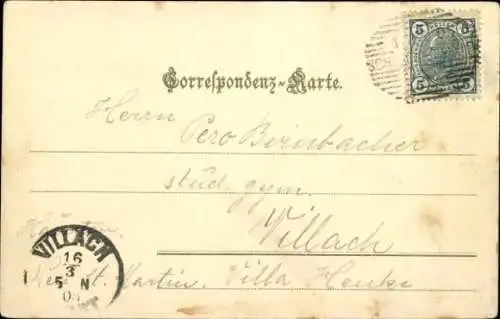 5 5
5 5
Correspondenz-Karte.
Herrn
Pero Birnbacher
stud. gym.
Villach
Kärnten.
VILLACH
16
3
5 N
St. Martin, Villa Henke